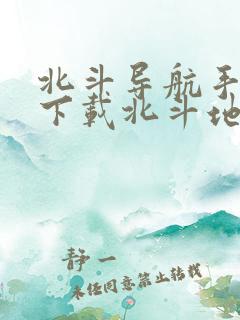 北斗导航手
下载北斗地
静一
未经同意禁止转载